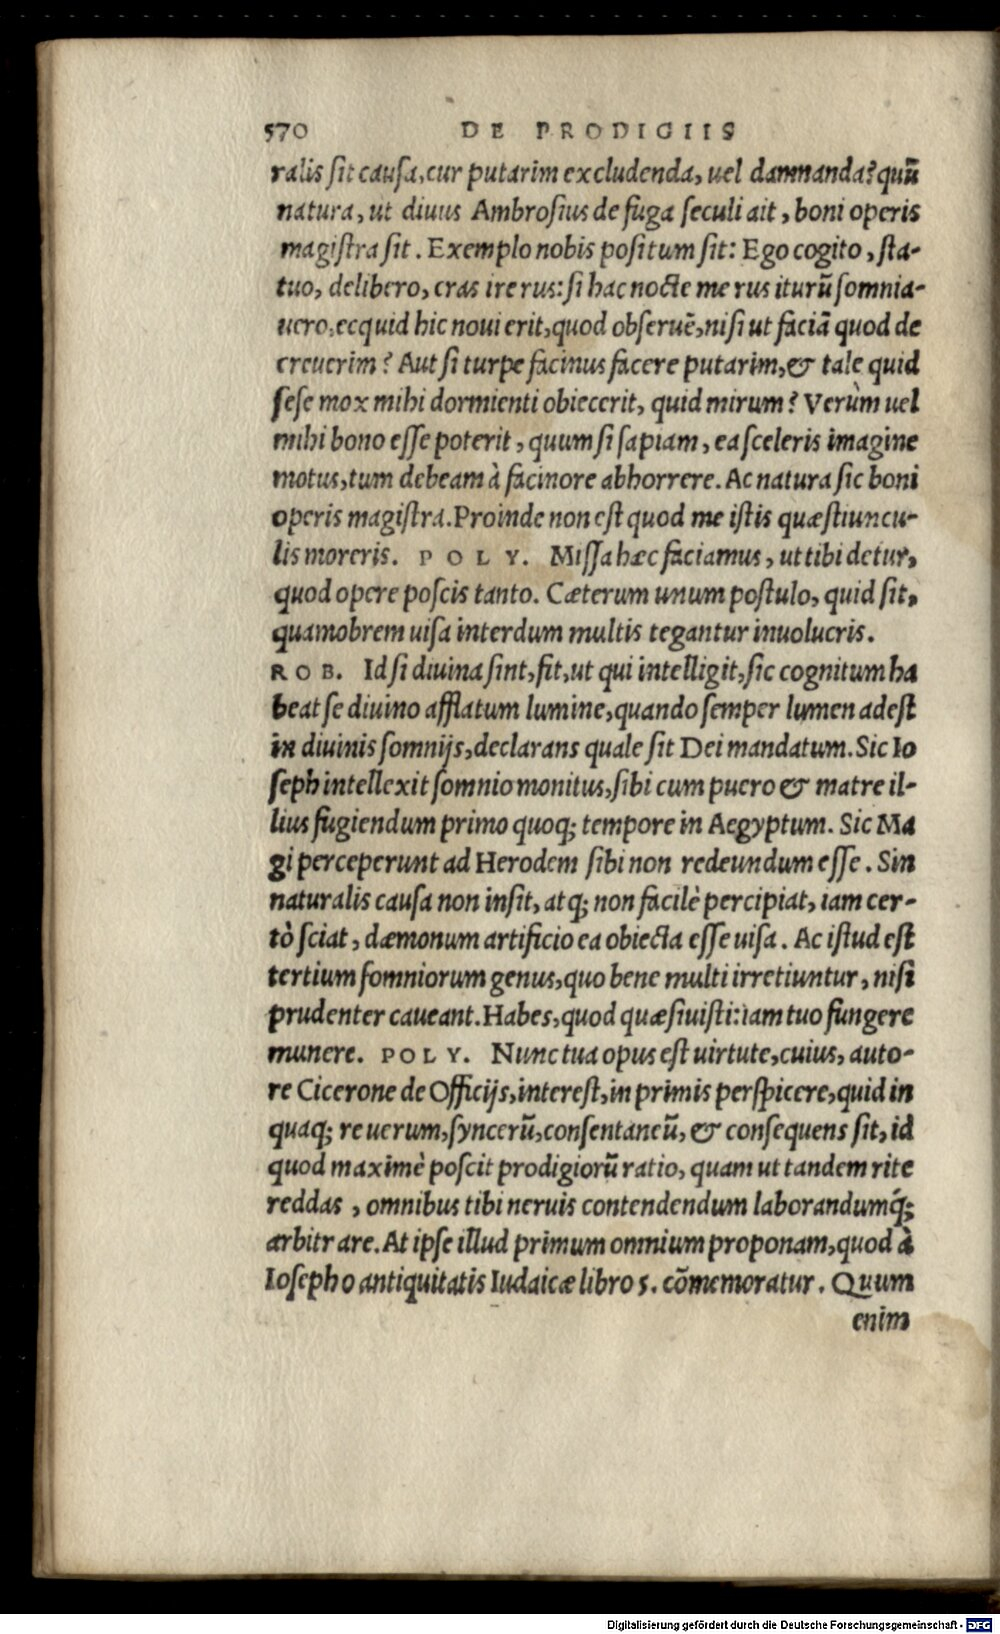 570 DE PRODIGIIS
ralis sit causa, cur putarim excludenda, uel damnanda? quū
natura, ut diuus Ambrosius de fuga seculi ait, boni operis
magistra sit. Exemplo nobis positum sit: Ego cogito, sta-
tuo, delibero, cras ire rus: si hac nocte me rus iturū somnia-
uero, ecquid hic noui erit, quod obseruē, nisi ut faciā quod de
creuerim? Aut si turpe facinus facere putarim, & tale quid
sese mox mihi dormienti obiecerit, quid mirum? Verùm uel
mihi bono esse poterit, quum si sapiam, ea sceleris imagine
motus, tum debeam à facinore abhorrere. Ac natura sic boni
operis magistra. Proinde non est quod me istis quæstiuncu-
lis moreris. POLY. Missa hæc faciamus, ut tibi detur,
quod opere poscis tanto. Cæterum unum postulo, quid sit,
quamobrem uisa interdum multis tegantur inuolucris.
ROB. Id si diuina sint, fit, ut qui intelligit, sic cognitum ha
beat se diuino afflatum lumine, quando semper lumen adest
in diuinis somnijs, declarans quale sit Dei mandatum. Sic Io
seph intellexit somnio monitus, sibi cum puero & matre il-
lius fugiendum primo quoq; tempore in Aegyptum. Sic Ma
gi perceperunt ad Herodem sibi non redeundum esse. Sin
naturalis causa non insit, atq; non facilè percipiat, iam cer-
tò sciat, dæmonum artificio ea obiecta esse uisa. Ac istud est
tertium somniorum genus, quo bene multi irretiuntur, nisi
prudenter caueant. Habes, quod quæsiuisti: iam tuo fungere
munere. POLY. Nunc tua opus est uirtute, cuius, auto-
re Cicerone de Officijs, interest, in primis perspicere, quid in
quaq; re uerum, syncerū, consentaneū, & consequens sit, id
quod maximè poscit prodigiorū ratio, quam ut tandem rite
reddas, omnibus tibi neruis contendendum laborandumq́;
arbitrare. At ipse illud primum omnium proponam, quod à
Iosepho antiquitatis Iudaicæ libro 5. cōmemoratur. Quum
enim
Digitalisierung gefördert durch die Deutsche Forschungsgemeinschaft - DFG